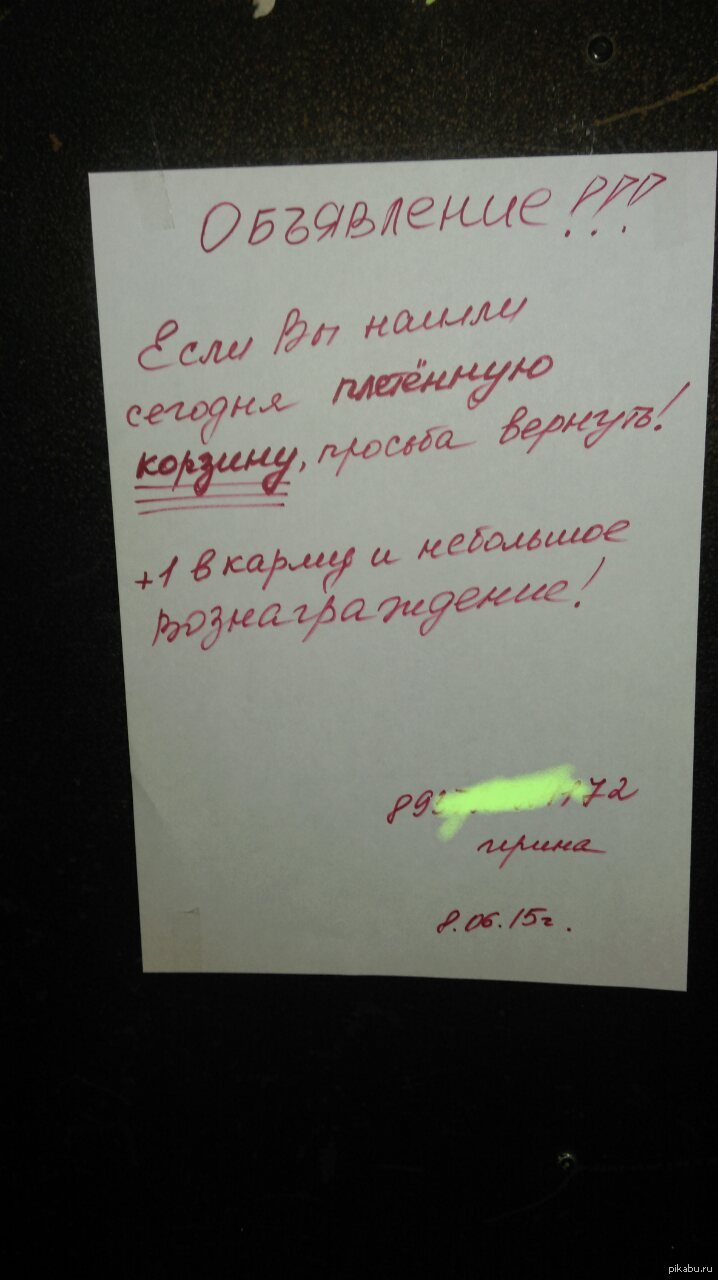 Объявление!!!
Если Вы нашли
сегодня плетённую
корзину, просьба вернуть!
+1 в карму и небольшое
вознаграждение!
89 72
ирина
8.06.15г.
pikabu.ru